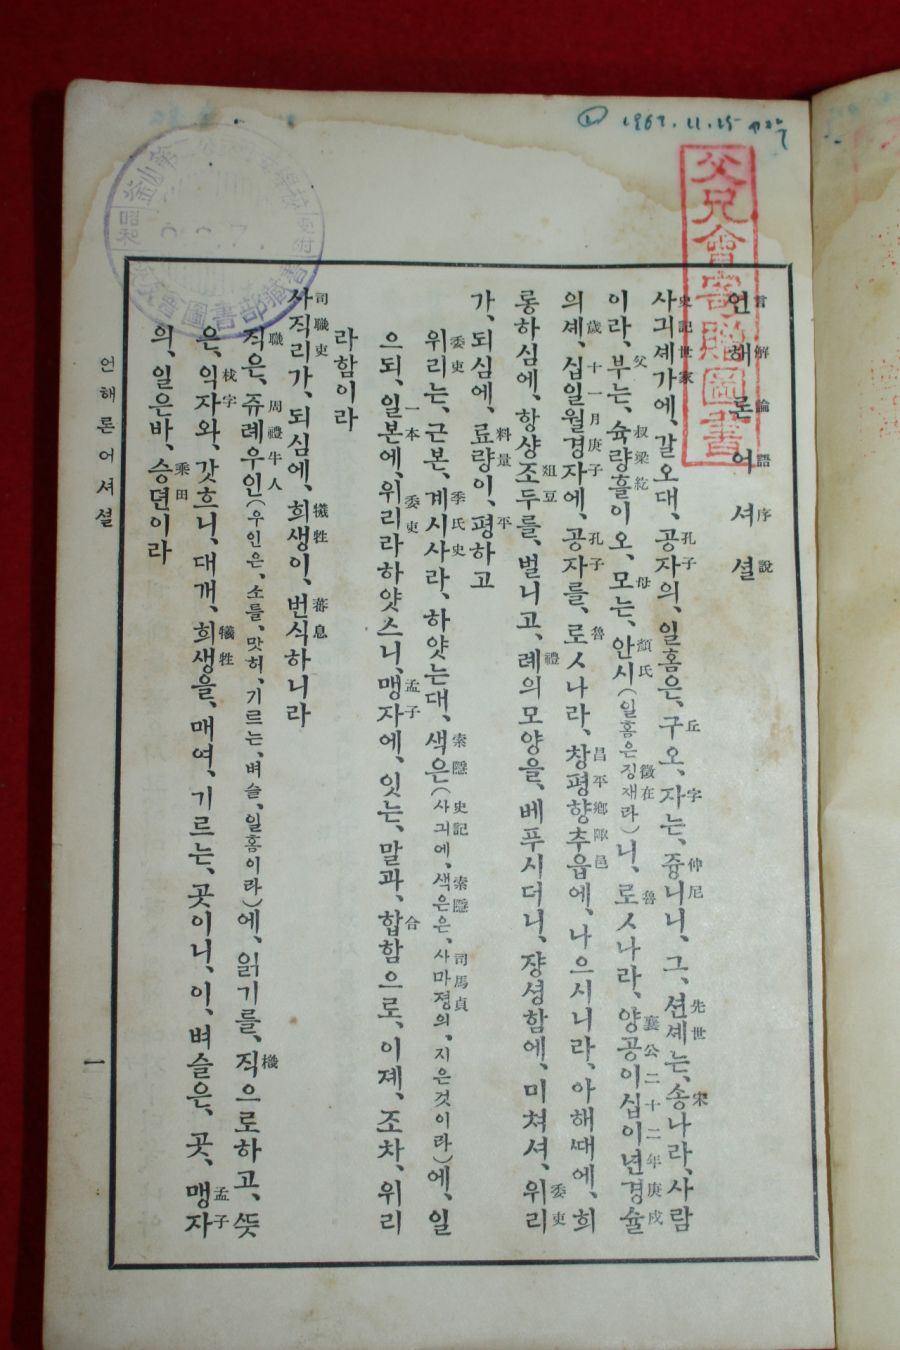 1967. 11. 15
父兄會寄贈圖書
언해론어셔셜
言解論語序說
사긔셰가에、갈오대、공자의、일홈은、구오、자는、즁니니、그、션셰는、송나라、사람
史記世家 孔子 丘 字 仲尼 先世 宋
이라、부는、슉량흘이오、모는、안시(일홈은징재라)니、로ㅅ나라、양공이십이년경슐
父 叔梁紇 母 顔氏 徵在 魯 襄公二十二年庚戌
의셰、십일월경자에、공자를、로ㅅ나라、창평향추읍에、나으시니라、아해ᄯᅢ에、희
歲 十一月庚子 孔子 魯 昌平鄕陬邑
롱하심에、항샹조두를、벌니고、례의모양을、베푸시더니、쟝셩함에、미쳐셔、위리
俎豆 禮 委吏
가、되심에、료량이、평하고
料量 平
위리는、근본、계시사라、하얏는대、색은(사긔에、색은은、사마졍의、지은것이라)에、일
委吏 季氏史 索隱 史記 索隱 司馬貞
으되、일본에、위리라하얏스니、맹자에、잇는、말과、합함으로、이졔、조차、위리
一本 委吏 孟子 合
라함이라
사직리가、되심에、희생이、번식하니라
司職吏 犧牲 蕃息
직은、쥬례우인(우인은、소를、맛허、기르는、벼슬、일홈이라)에、읽기를、직으로하고、ᄯᅳᆺ
職 周禮牛人 樴
은、익자와、갓흐니、대개、희생을、매여、기르는、곳이니、이、벼슬은、곳、맹자
杙字 犧牲 孟子
의、일은바、승뎐이라
乘田
언해론어셔셜
一